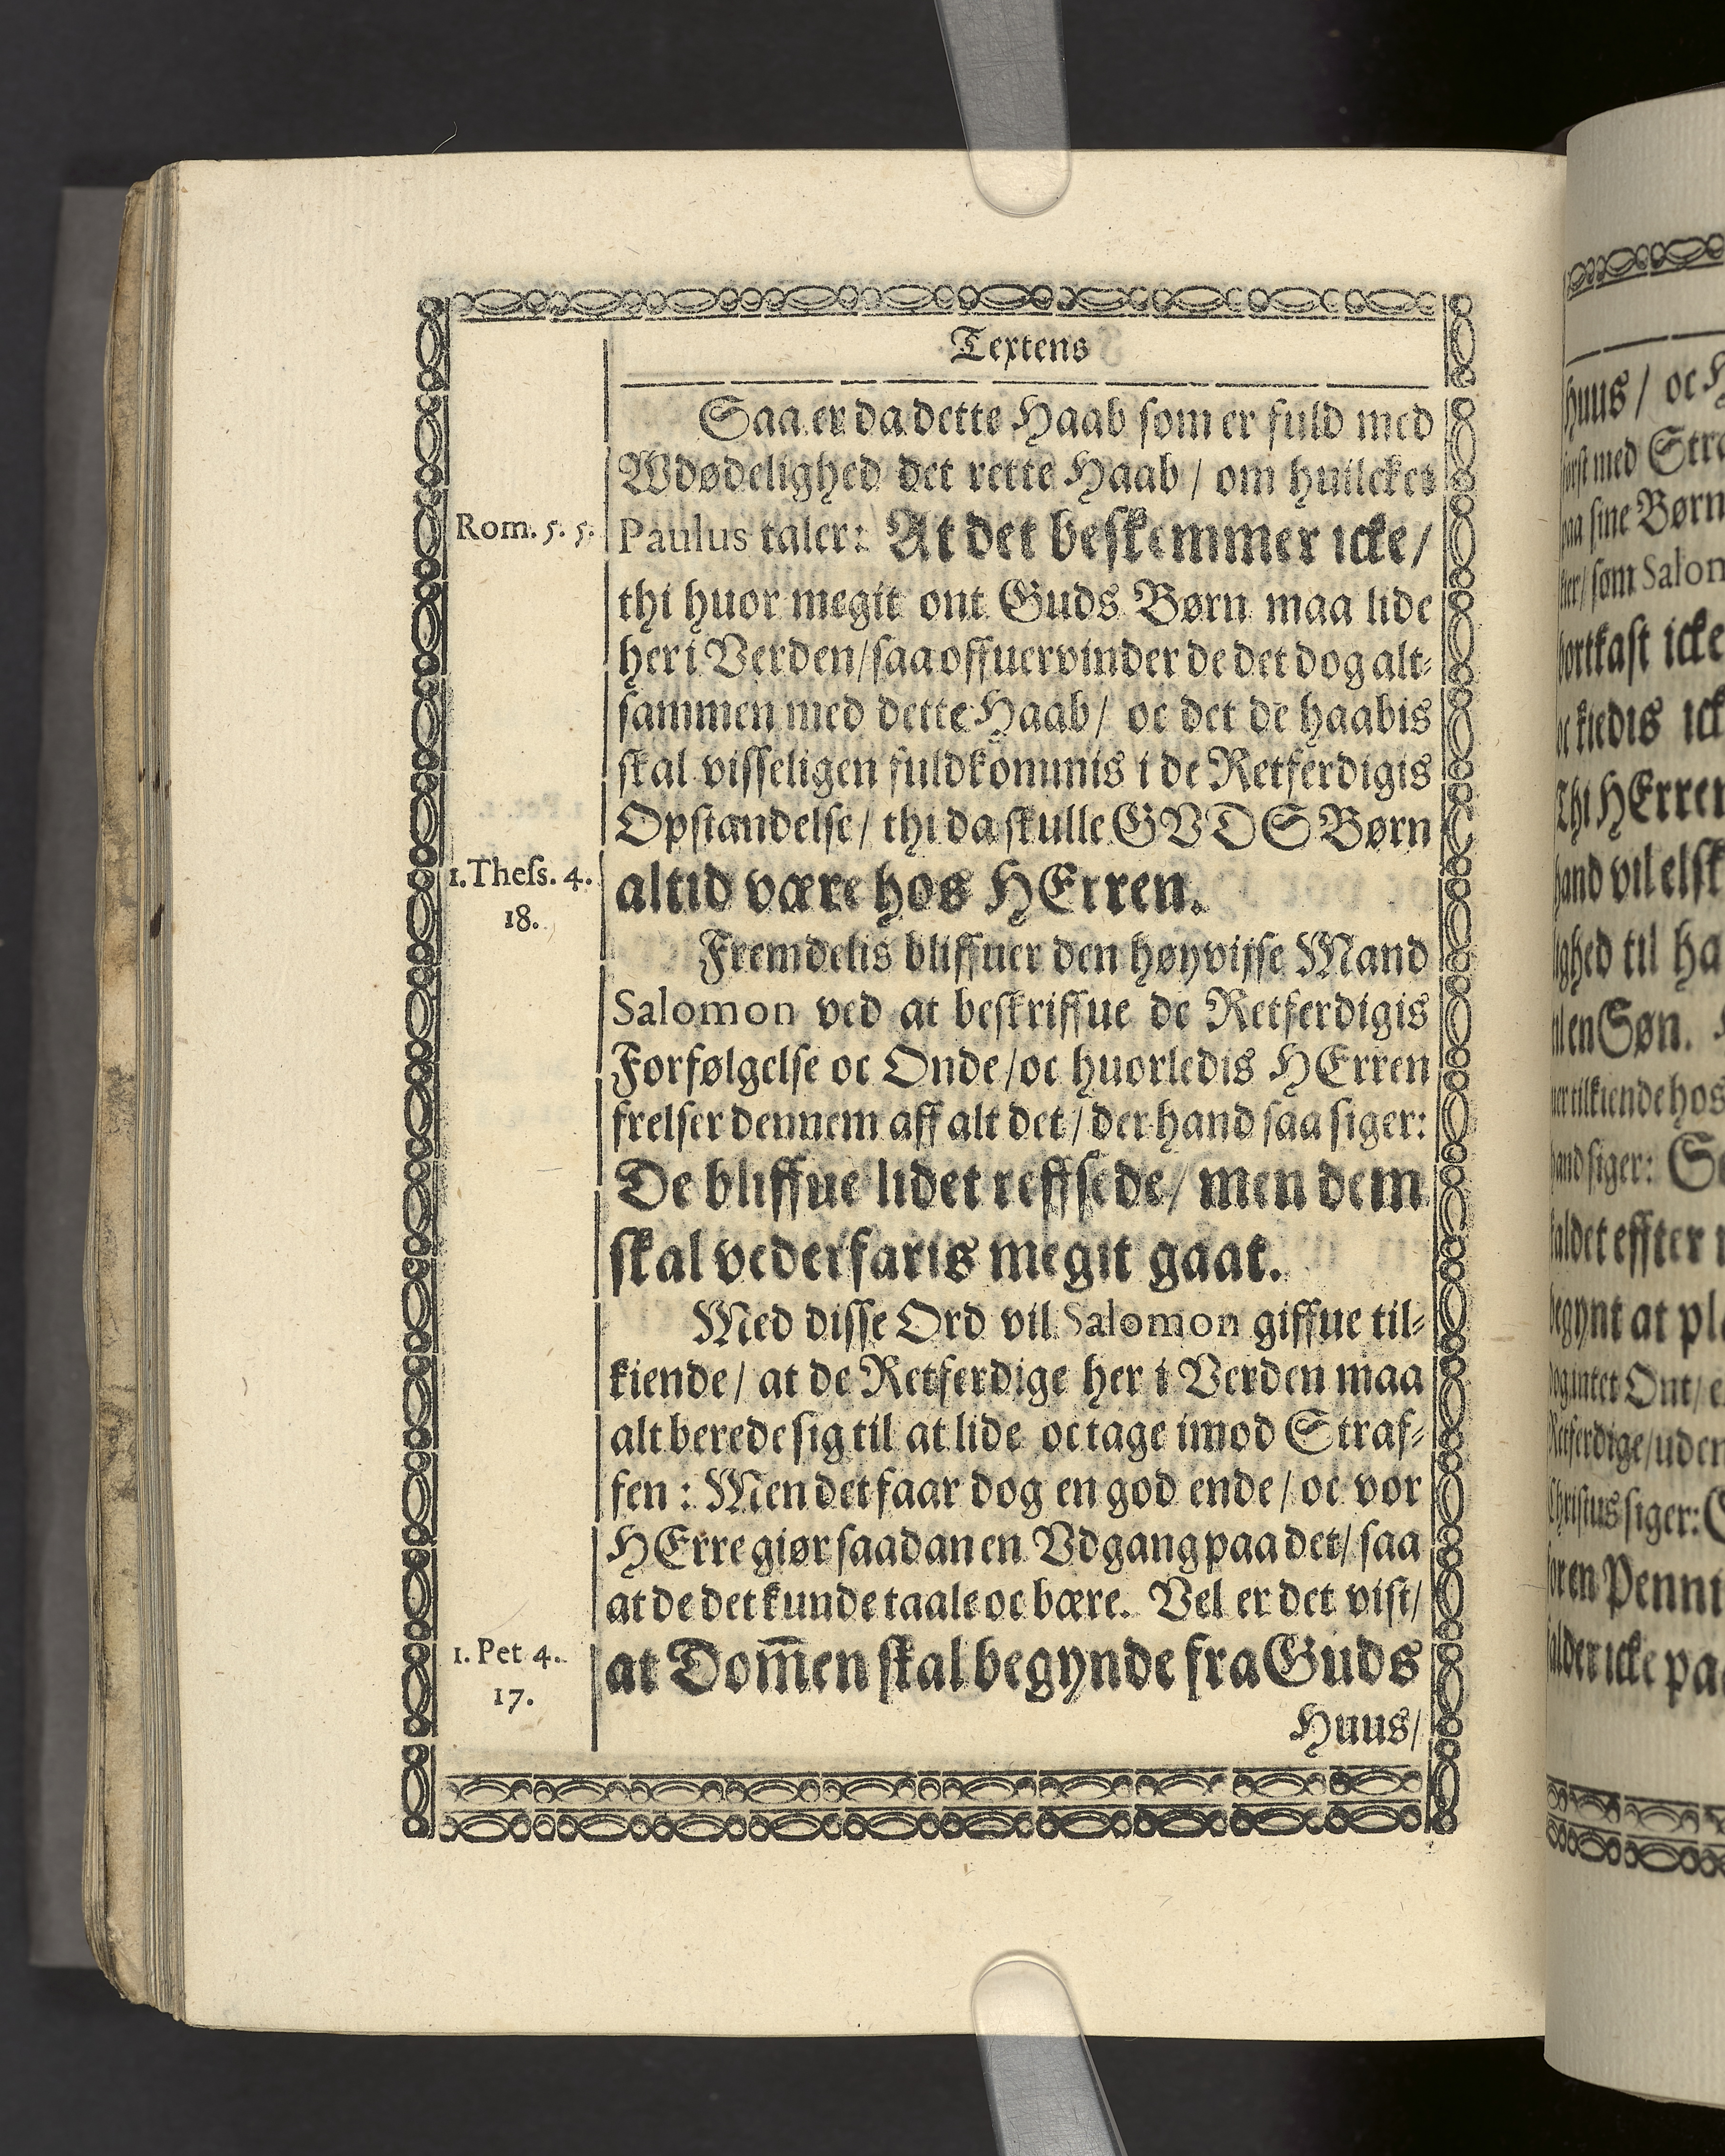 Textens
Saa er da dette Haab som er fuld med
Wdødelighed det rette Haab / om huilckes
Rom. 5. 5.
Paulus taler: At det beskemmer icke /
thi huor megit ont Guds Børn maa lide
her i Verden / saa offuervinder de det dog alt⸗
sammen med dette Haab / oc det de haabis
skal visseligen fuldkommis i de Retferdigis
Opstandelse / thi da skulle GVDS Børn
1. Thess. 4.
18.
altid være hos HErren.
Fremdelis bliffuer den høyvijse Mand
Salomon ved at beskriffue de Retferdigis
Forfølgelse oc Onde / oc huorledis HErren
frelser dennem aff alt det / der hand saa siger:
De bliffue lidet reffsede / men dem
skal vederfaris megit gaat.
Med disse Ord vil Salomon giffue til⸗
kiende / at de Retferdige her i Verden maa
alt berede sig til at lide oc tage imod Straf⸗
fen : Men det faar dog en god ende / oc vor
HErre giør saadan en Vdgang paa det / saa
at de det kunde taale oc bære. Vel er det vist /
1. Pet 4.
17.
at Dom̅en skal begynde fra Guds
Huus /
huus / oc
med
paa sine Børn
som
bortkast icke
oc kiedis
Thi HErren
hand vil
til
en Søn.
tilkiende hos
hand siger:
effter
begynt at
intet Ont /
Retferdige / uden
Christus siger:
icke